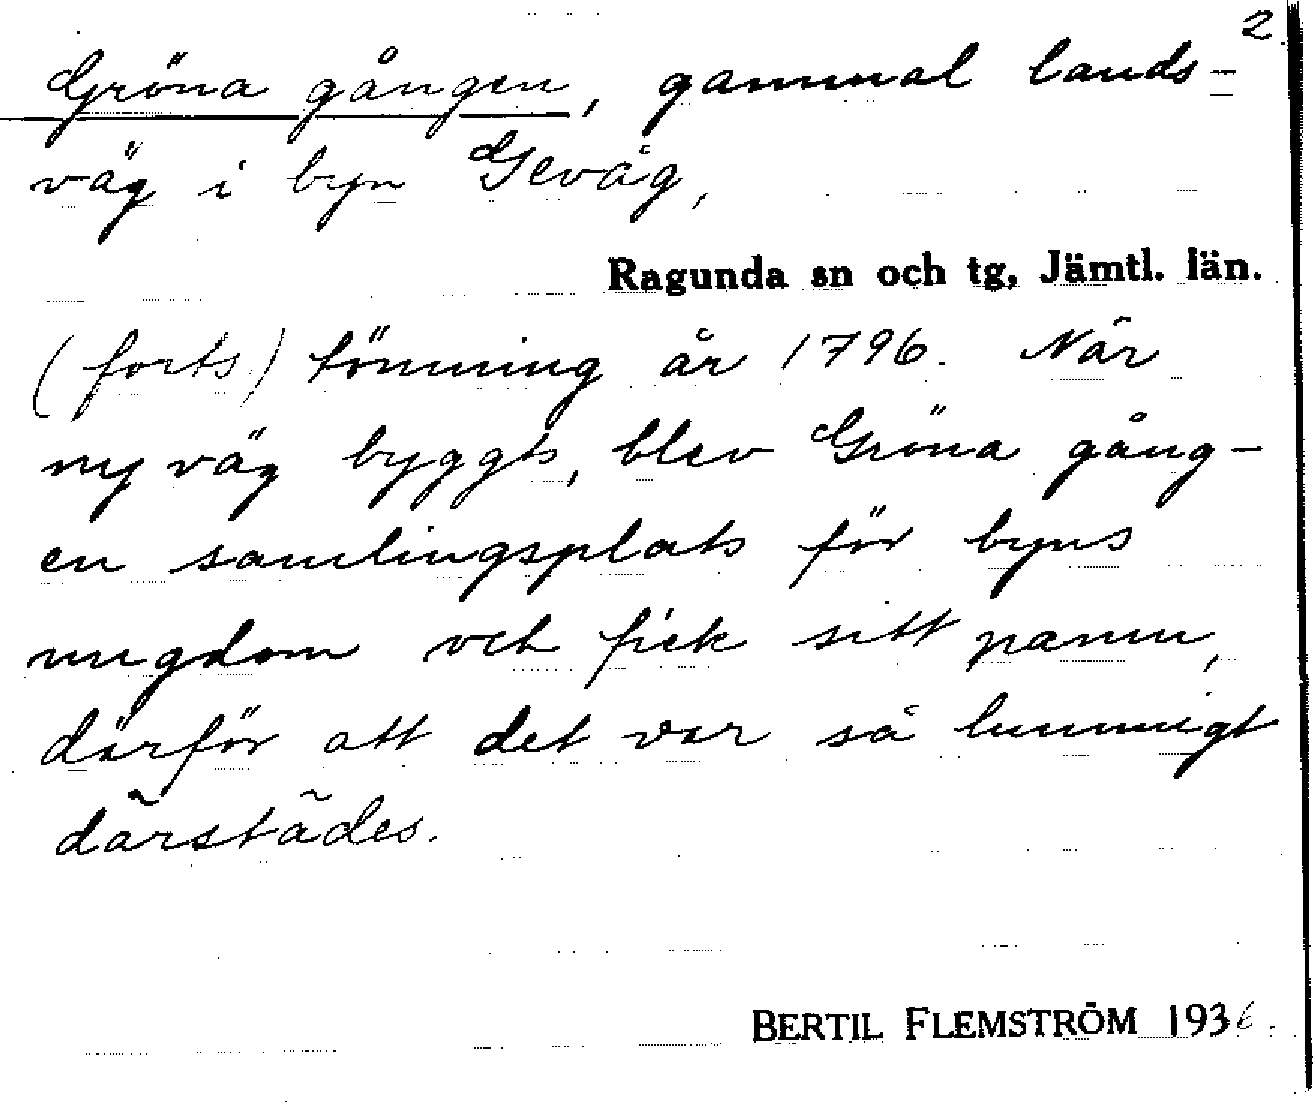 2.
Gröna gången, gammal lands-
väg i byn Gevåg,
Ragunda sn och tg, Jämtl. län.
(forts) tömning år 1796. När
ny väg byggts, blev Gröna gång-
en samlingsplats för byns
ungdom och fick sitt namn,
därför att det var så lummigt
därstädes.
BERTIL FLEMSTRÖM 1936.